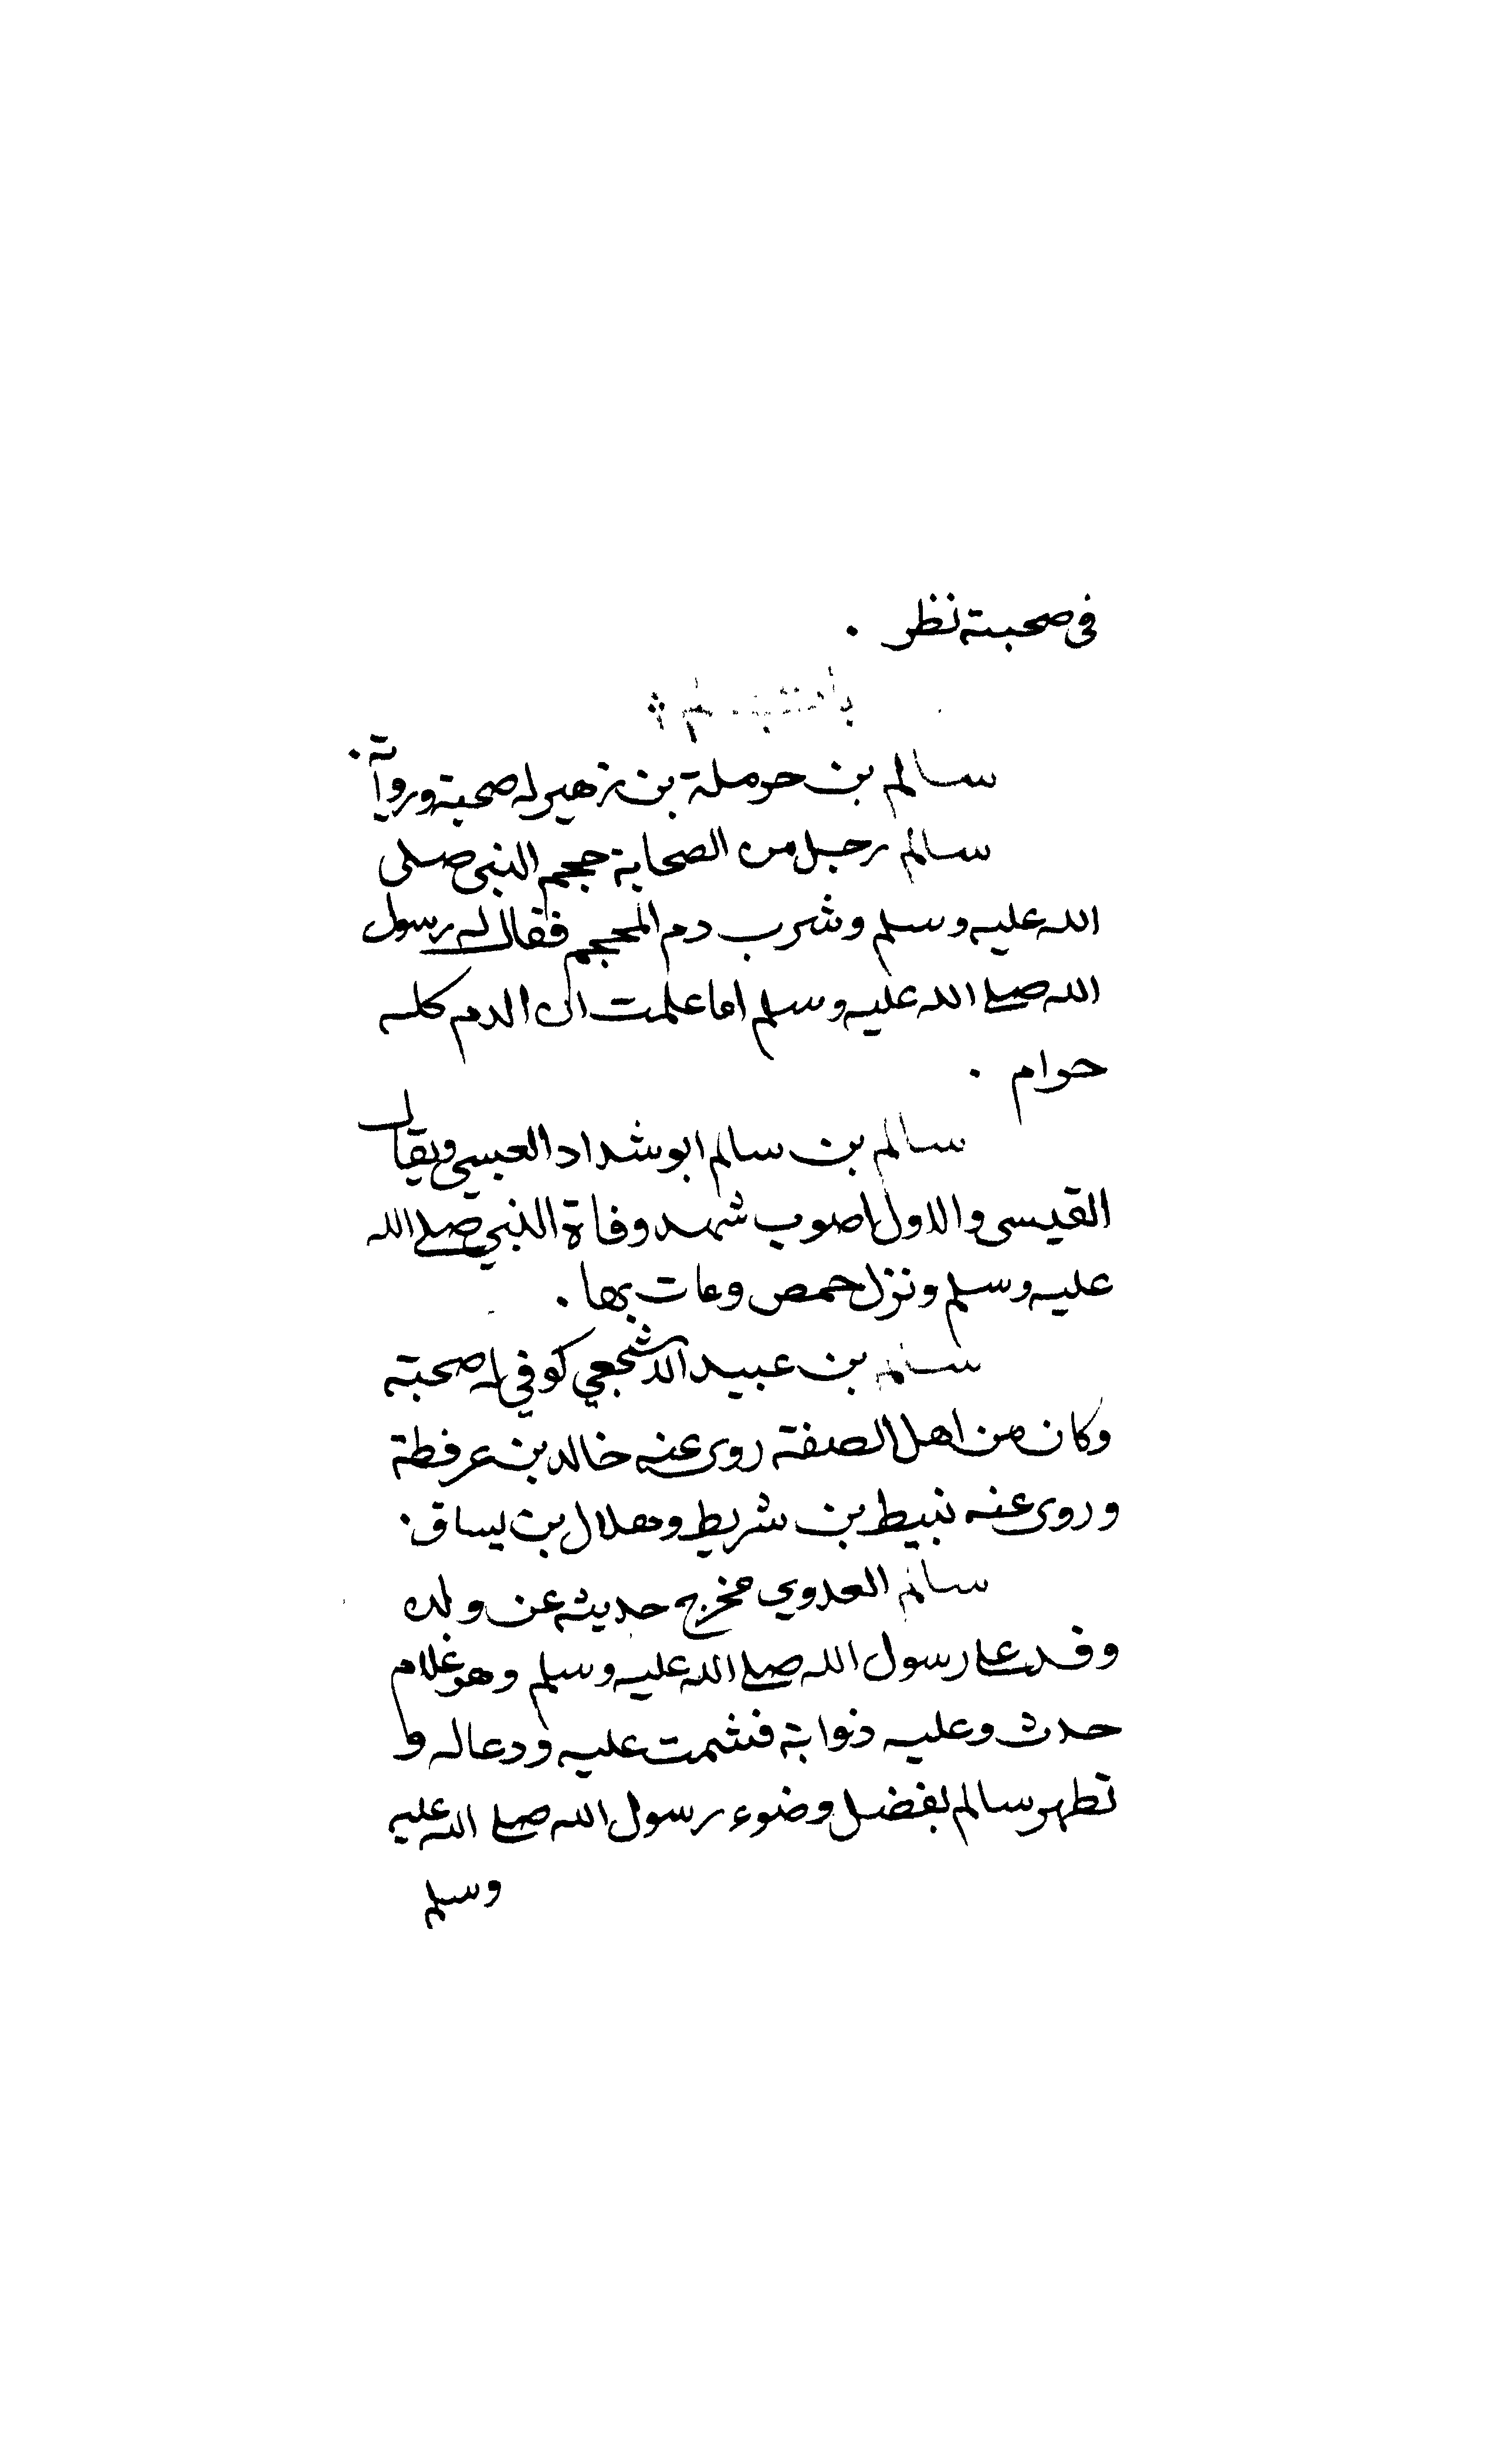 فى صحبته نظر .
سالم بن حرملة بن زهير له صحبة ورواية .
سالم رجل من الصحابة حجم النبى صلى
الله عليه وسلم وشرب دم المحجم فقال له رسول
الله صلى الله عليه وسلم اما علمت ان الدم كله
حرام .
سالم بن سالم ابو شداد العبسي ويقال
القيسى والاول اصوب شهد وفاة النبي صلى الله
عليه وسلم ونزل حمص ومات بها .
سالم بن عبيد الاشجعي كوفي له صحبة
وكان من اهل الصفة روى عنه خالد بن عرفطة
وروى عنه نبيط بن شريط وهلال بن يساق .
سالم العدوي مخرج حديثه عن ولده
وفد على رسول الله صلى الله عليه وسلم وهو غلام
حدث وعليه ذوابة فشمت عليه ودعا له و
تطهر سالم بفضل وضوء رسول الله صلى الله عليه
وسلم